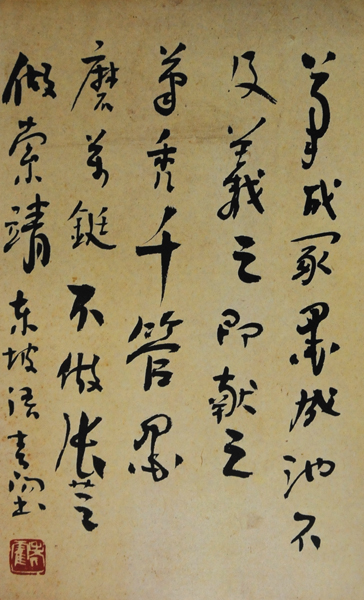 筆成冢墨成池不
及羲之即献之
筆秃千管墨
磨萬鋌不做张芝
做索靖 东坡语